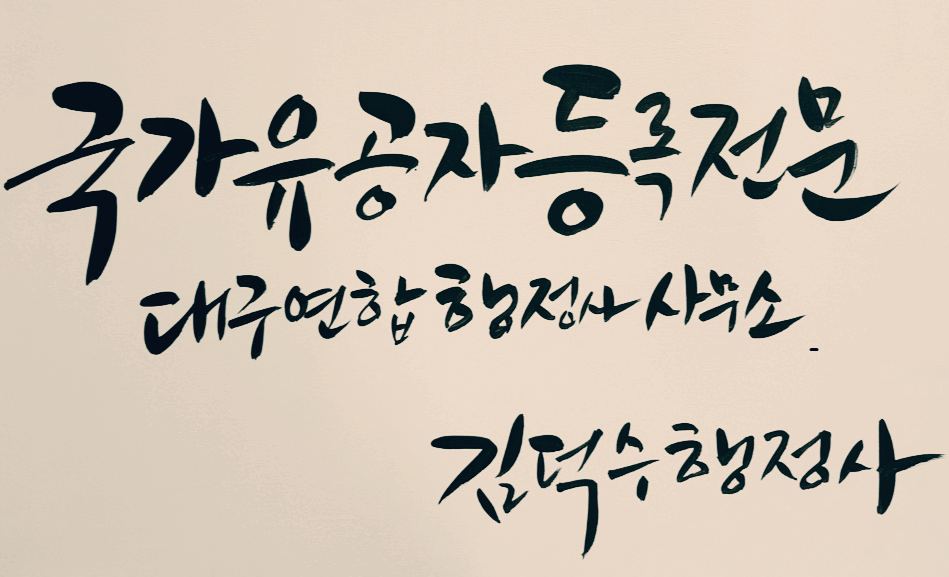 국가유공자등록전문
대구연합 행정사 사무소
김덕수행정사